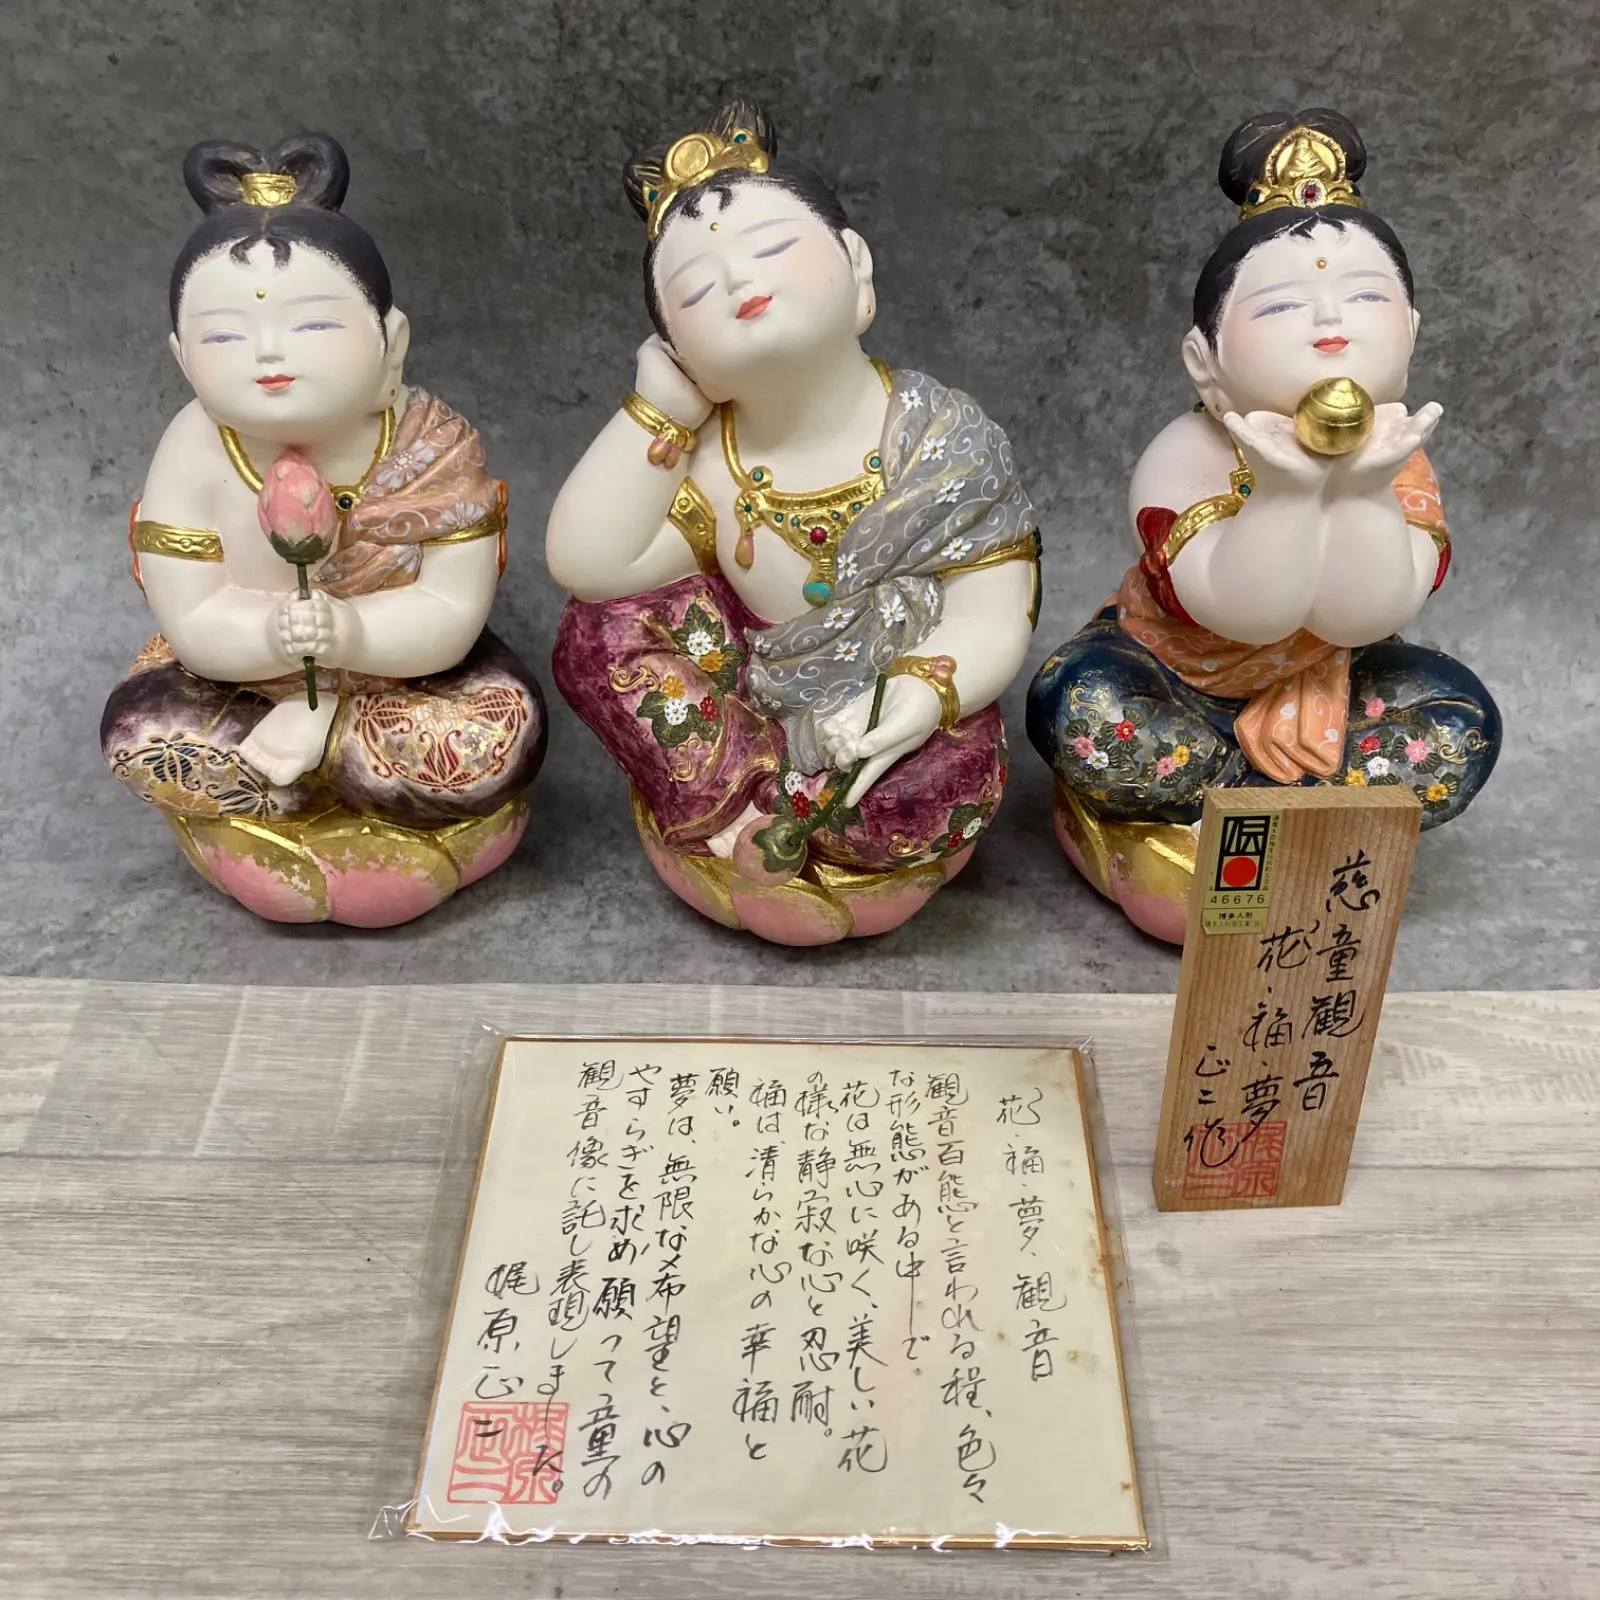 花・福・夢、観音
観音百態と言われる程、色々
な形態がある中で、
花は無心に咲く、美しい花
の様な静寂な心と忍耐。
福は、清らかな心の幸福と
願い。
夢は、無限な希望と、心の
やすらぎを求め願って童の
観音像に託し表現しました。
梶原正二
慈童観音
花・福・夢
正二作
伝
46676
博多人形